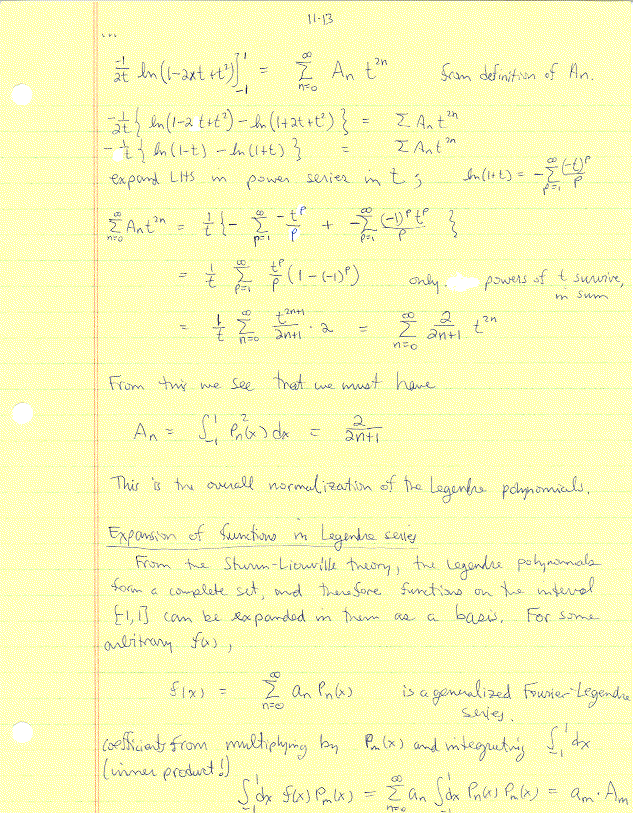 11-13
...
-1/2t ln(1-2xt+t²)]₋₁¹ = ∑_{n=0}^∞ Aₙ t²ⁿ from definition of Aₙ.
-1/2t { ln(1-2t+t²) - ln(1+2t+t²) } = ∑ Aₙ t²ⁿ
-1/t { ln(1-t) - ln(1+t) } = ∑ Aₙ t²ⁿ
expand LHS in power series in t ; ln(1+t) = -∑_{p=1}^∞ (-t)^p/p
∑_{n=0}^∞ Aₙ t²ⁿ = 1/t { -∑_{p=1}^∞ -t^p/p + -∑_{p=1}^∞ (-1)^p t^p/p }
= 1/t ∑_{p=1}^∞ t^p/p (1-(-1)^p) only powers of t survive,
in sum
= 1/t ∑_{n=0}^∞ t^{2n+1}/2n+1 · 2 = ∑_{n=0}^∞ 2/2n+1 t²ⁿ
From this we see that we must have
Aₙ = ∫₋₁¹ Pₙ²(x) dx = 2/2n+1
This is the overall normalization of the Legendre polynomials.
Expansion of functions in Legendre series
From the Sturm-Liouville theory, the Legendre polynomials
form a complete set, and therefore functions on the interval
[-1,1] can be expanded in them as a basis. For some
arbitrary f(x),
f(x) = ∑_{n=0}^∞ aₙ Pₙ(x) is a generalized Fourier-Legendre
series.
coefficients from multiplying by Pₘ(x) and integrating ∫₋₁¹ dx
(inner product!)
∫₋₁¹ dx f(x) Pₘ(x) = ∑_{n=0}^∞ aₙ ∫₋₁¹ dx Pₙ(x) Pₘ(x) = aₘ · Aₘ